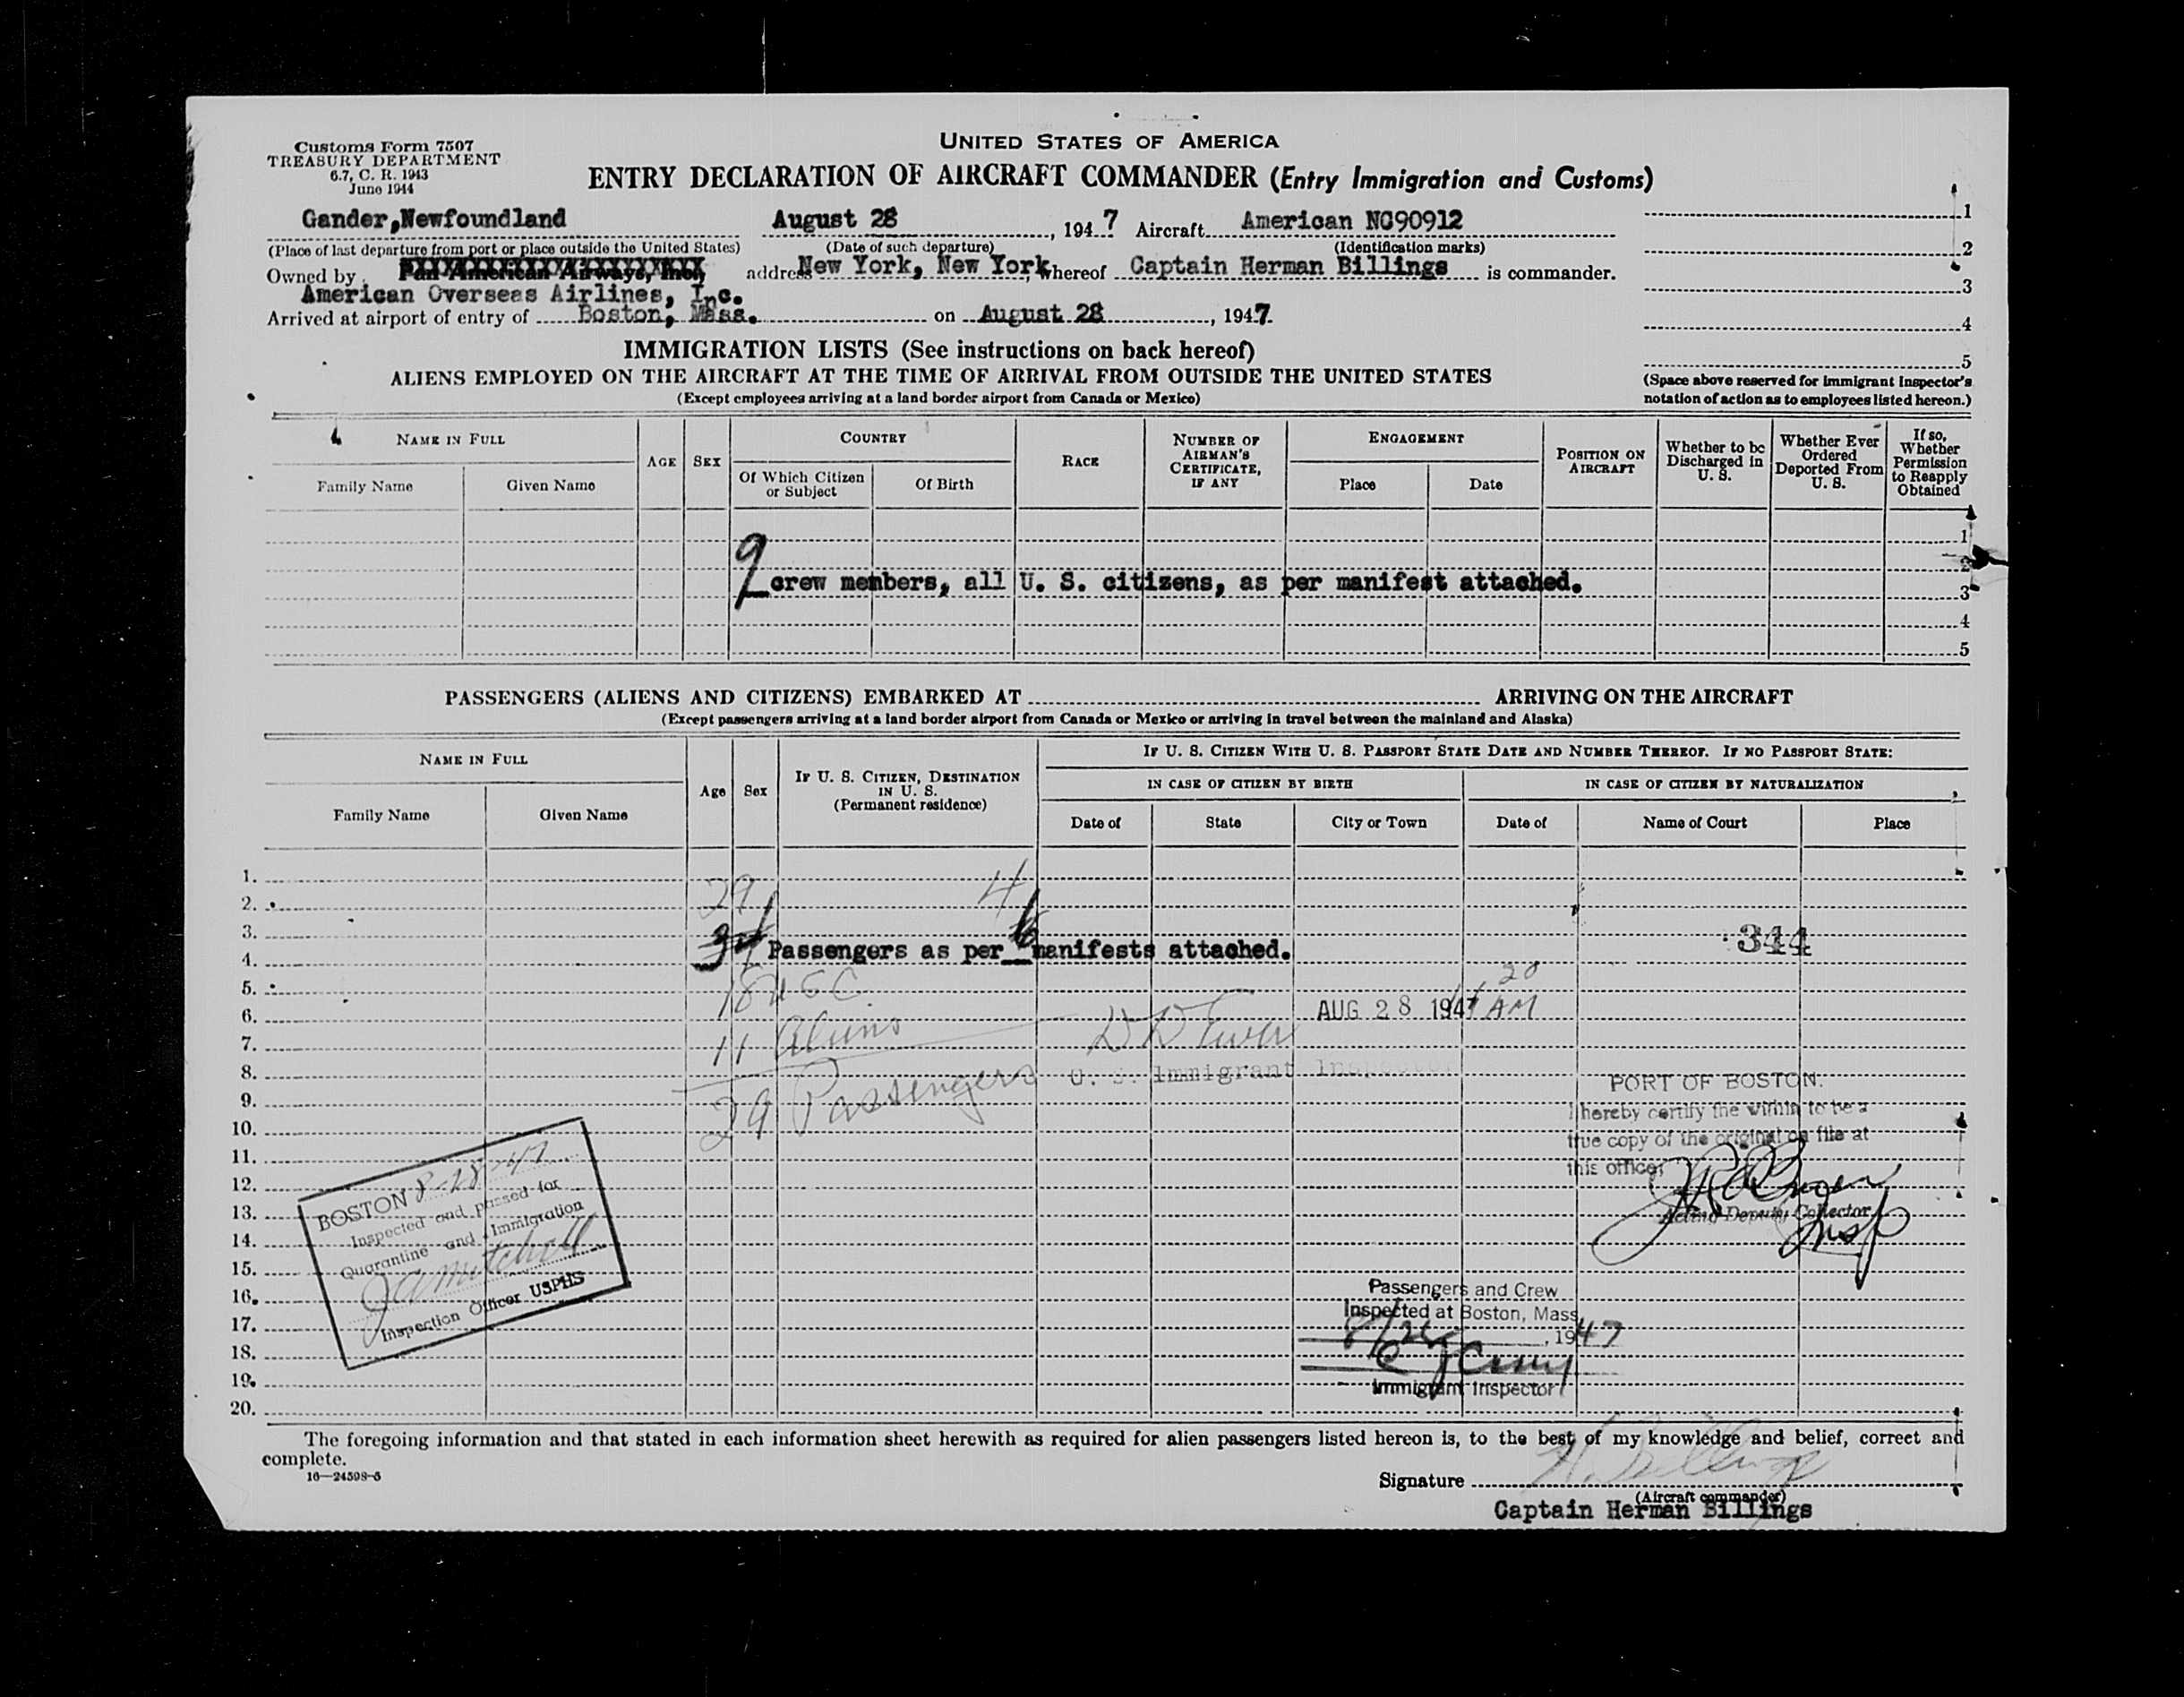 Customs Form 7507
TREASURY DEPARTMENT
6.7, C. R. 1943
June 1944
UNITED STATES OF AMERICA
ENTRY DECLARATION OF AIRCRAFT COMMANDER (Entry Immigration and Customs)
Gander,Newfoundland August 28, 1947 Aircraft American NC90912
(Place of last departure from port or place outside the United States) (Date of such departure) (Identification marks)
Owned by Pan American Airways, Inc. address New York, New York, whereof Captain Herman Billings is commander.
American Overseas Airlines, Inc.
Arrived at airport of entry of Boston, Mass. on August 28, 1947.
1
2
3
4
5
(Space above reserved for immigrant inspector's
notation of action as to employees listed hereon.)
IMMIGRATION LISTS (See instructions on back hereof)
ALIENS EMPLOYED ON THE AIRCRAFT AT THE TIME OF ARRIVAL FROM OUTSIDE THE UNITED STATES
(Except employees arriving at a land border airport from Canada or Mexico)
NAME IN FULL
Family Name Given Name
AGE
SEX
COUNTRY
Of Which Citizen or Subject
Of Birth
RACE
NUMBER OF AIRMAN'S CERTIFICATE, IF ANY
ENGAGEMENT
Place Date
POSITION ON AIRCRAFT
Whether to be Discharged in U. S.
Whether Ever Ordered Deported From U. S.
If so, Whether Permission to Reapply Obtained
1
2
9 crew members, all U. S. citizens, as per manifest attached.
3
4
5
PASSENGERS (ALIENS AND CITIZENS) EMBARKED AT ARRIVING ON THE AIRCRAFT
(Except passengers arriving at a land border airport from Canada or Mexico or arriving in travel between the mainland and Alaska)
NAME IN FULL
Family Name Given Name
Age
Sex
IF U. S. CITIZEN, DESTINATION IN U. S.
(Permanent residence)
IF U. S. CITIZEN WITH U. S. PASSPORT STATE DATE AND NUMBER THEREOF. IF NO PASSPORT STATE:
IN CASE OF CITIZEN BY BIRTH IN CASE OF CITIZEN BY NATURALIZATION
Date of State City or Town Date of Name of Court Place
1.
2. 29 4
3.
4. Passengers as per 6 manifests attached. 344
5. 18 USC
6. AUG 28 1947 20 AM
7. 11 Aliens
8. U. S. Immigrant Inspector
9. 29 Passengers
10.
11.
12.
13.
14.
15.
16.
17.
18.
19.
20.
PORT OF BOSTON.
I hereby certify the within to be a
true copy of the original on file at
this office.
Acting Deputy Collector
Insp
BOSTON 8-28-47
Inspected and passed for
Quarantine and Immigration
JA Mitchell
Inspection Officer USPHS
Passengers and Crew
Inspected at Boston, Mass.
1947
Immigrant Inspector
The foregoing information and that stated in each information sheet herewith as required for alien passengers listed hereon is, to the best of my knowledge and belief, correct and
complete.
16—24598-5
Signature H. Billings
(Aircraft commander)
Captain Herman Billings